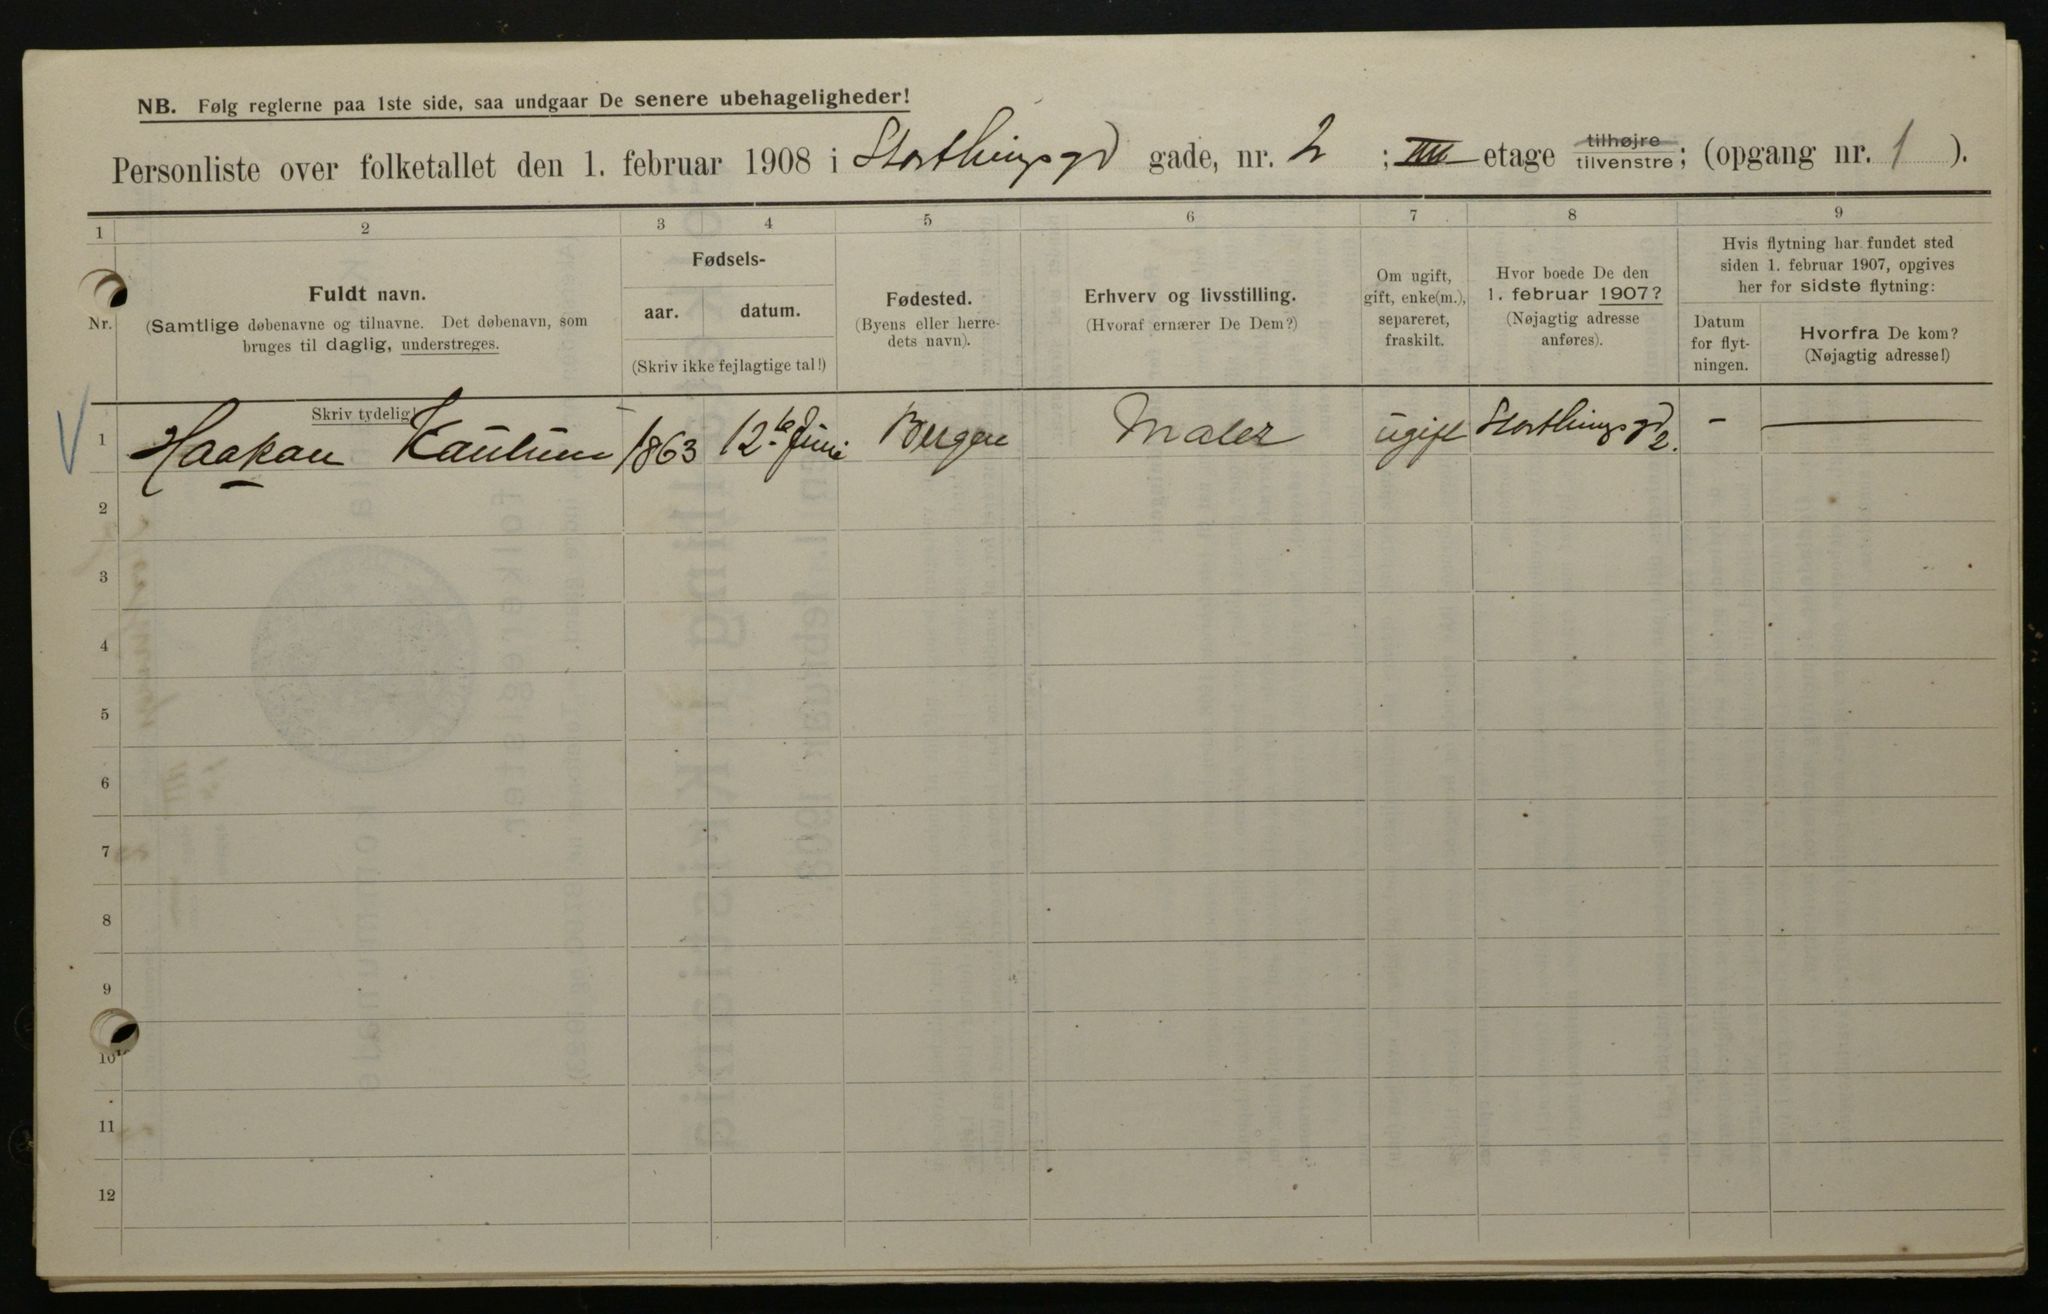 NB. Følg reglerne paa 1ste side, saa undgaar De senere ubehageligheder!
Personliste over folketallet den 1. februar 1908 i Storthingsgd gade, nr. 2 ; IIII etage tilhøjre tilvenstre; (opgang nr. 1 ).
1 2 3 4 5 6 7 8 9
Nr.
Fuldt navn.
(Samtlige døbenavne og tilnavne. Det døbenavn, som
bruges til daglig, understreges.
Skriv tydelig!
Fødsels-
aar. datum.
(Skriv ikke fejlagtige tal!)
Fødested.
(Byens eller herre-
dets navn).
Erhverv og livsstilling.
(Hvoraf ernærer De Dem?)
Om ugift,
gift, enke(m.),
separeret,
fraskilt.
Hvor boede De den
1. februar 1907?
(Nøjagtig adresse
anføres).
Hvis flytning har fundet sted
siden 1. februar 1907, opgives
her for sidste flytning:
Datum
for flyt-
ningen.
Hvorfra De kom?
(Nøjagtig adresse!)
1 Haakan 1863 12te Juni Bergen Maler ugift Storthingsgd 2. - —
2
3
4
5
6
7
8
9
10
11
12